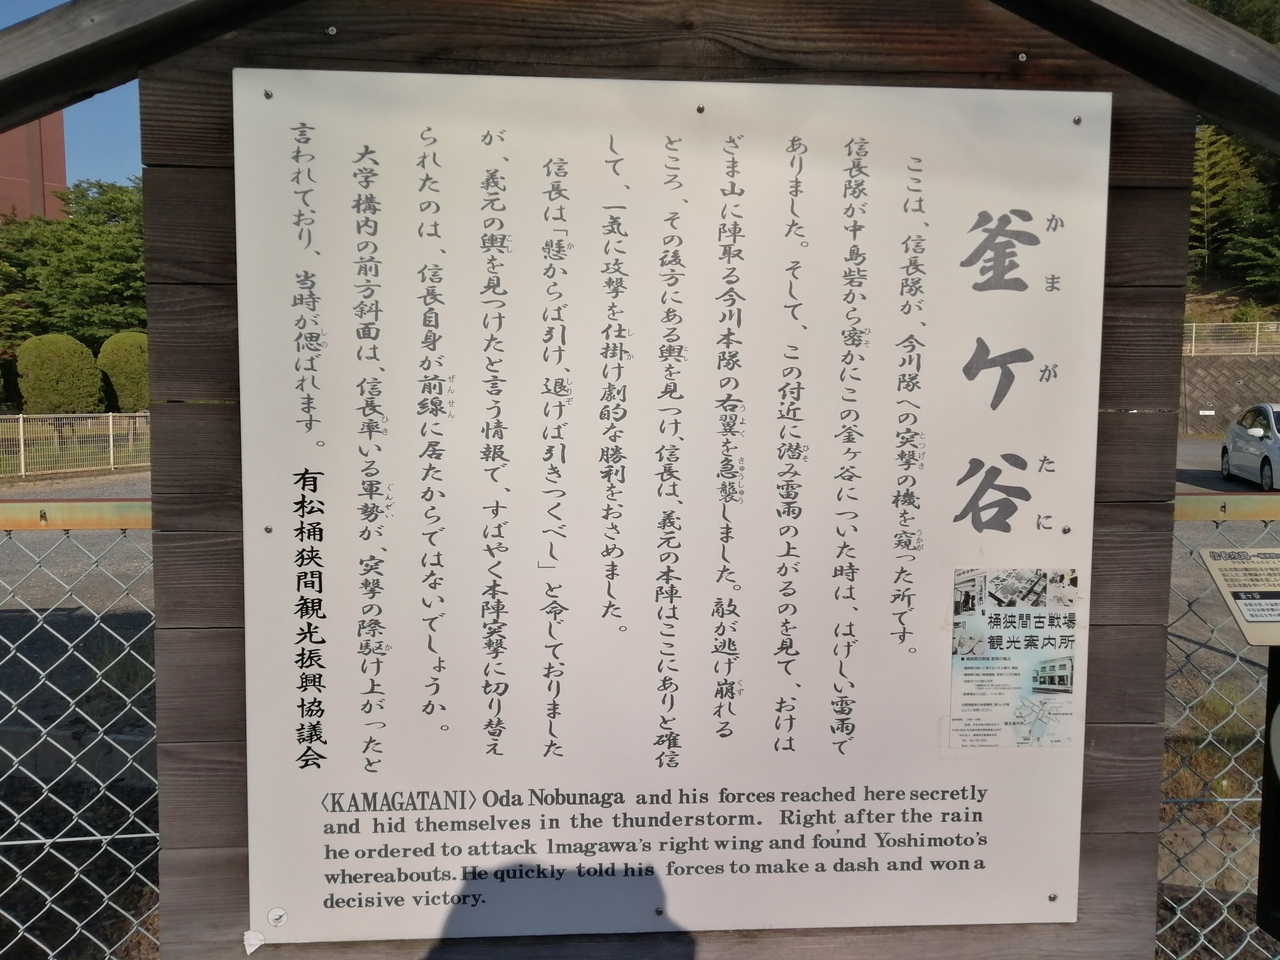 釜ケ谷
かまがたに
ここは、信長隊が、今川隊への突撃の機を窺った所です。
信長隊が中島砦から密かにこの釜ヶ谷についた時は、はげしい雷雨で
ありました。そして、この付近に潜み雷雨の上がるのを見て、おけは
ざま山に陣取る今川本隊の右翼を急襲しました。敵が逃げ崩れる
ところ、その後方にある輿を見つけ、信長は、義元の本陣はここにありと確信
して、一気に攻撃を仕掛け劇的な勝利をおさめました。
信長は「懸からば引け、退げば引きつくべし」と令しておりました
が、義元の輿を見つけたと言う情報で、すばやく本陣突撃に切り替え
られたのは、信長自身が前線に居たからではないでしょうか。
大学構内の前方斜面は、信長率いる軍勢が、突撃の際駆け上がったと
言われており、当時が偲ばれます。 有松桶狭間観光振興協議会
桶狭間古戦場
観光案内所
〈KAMAGATANI〉 Oda Nobunaga and his forces reached here secretly
and hid themselves in the thunderstorm. Right after the rain
he ordered to attack Imagawa's right wing and found Yoshimoto's
whereabouts. He quickly told his forces to make a dash and won a
decisive victory.